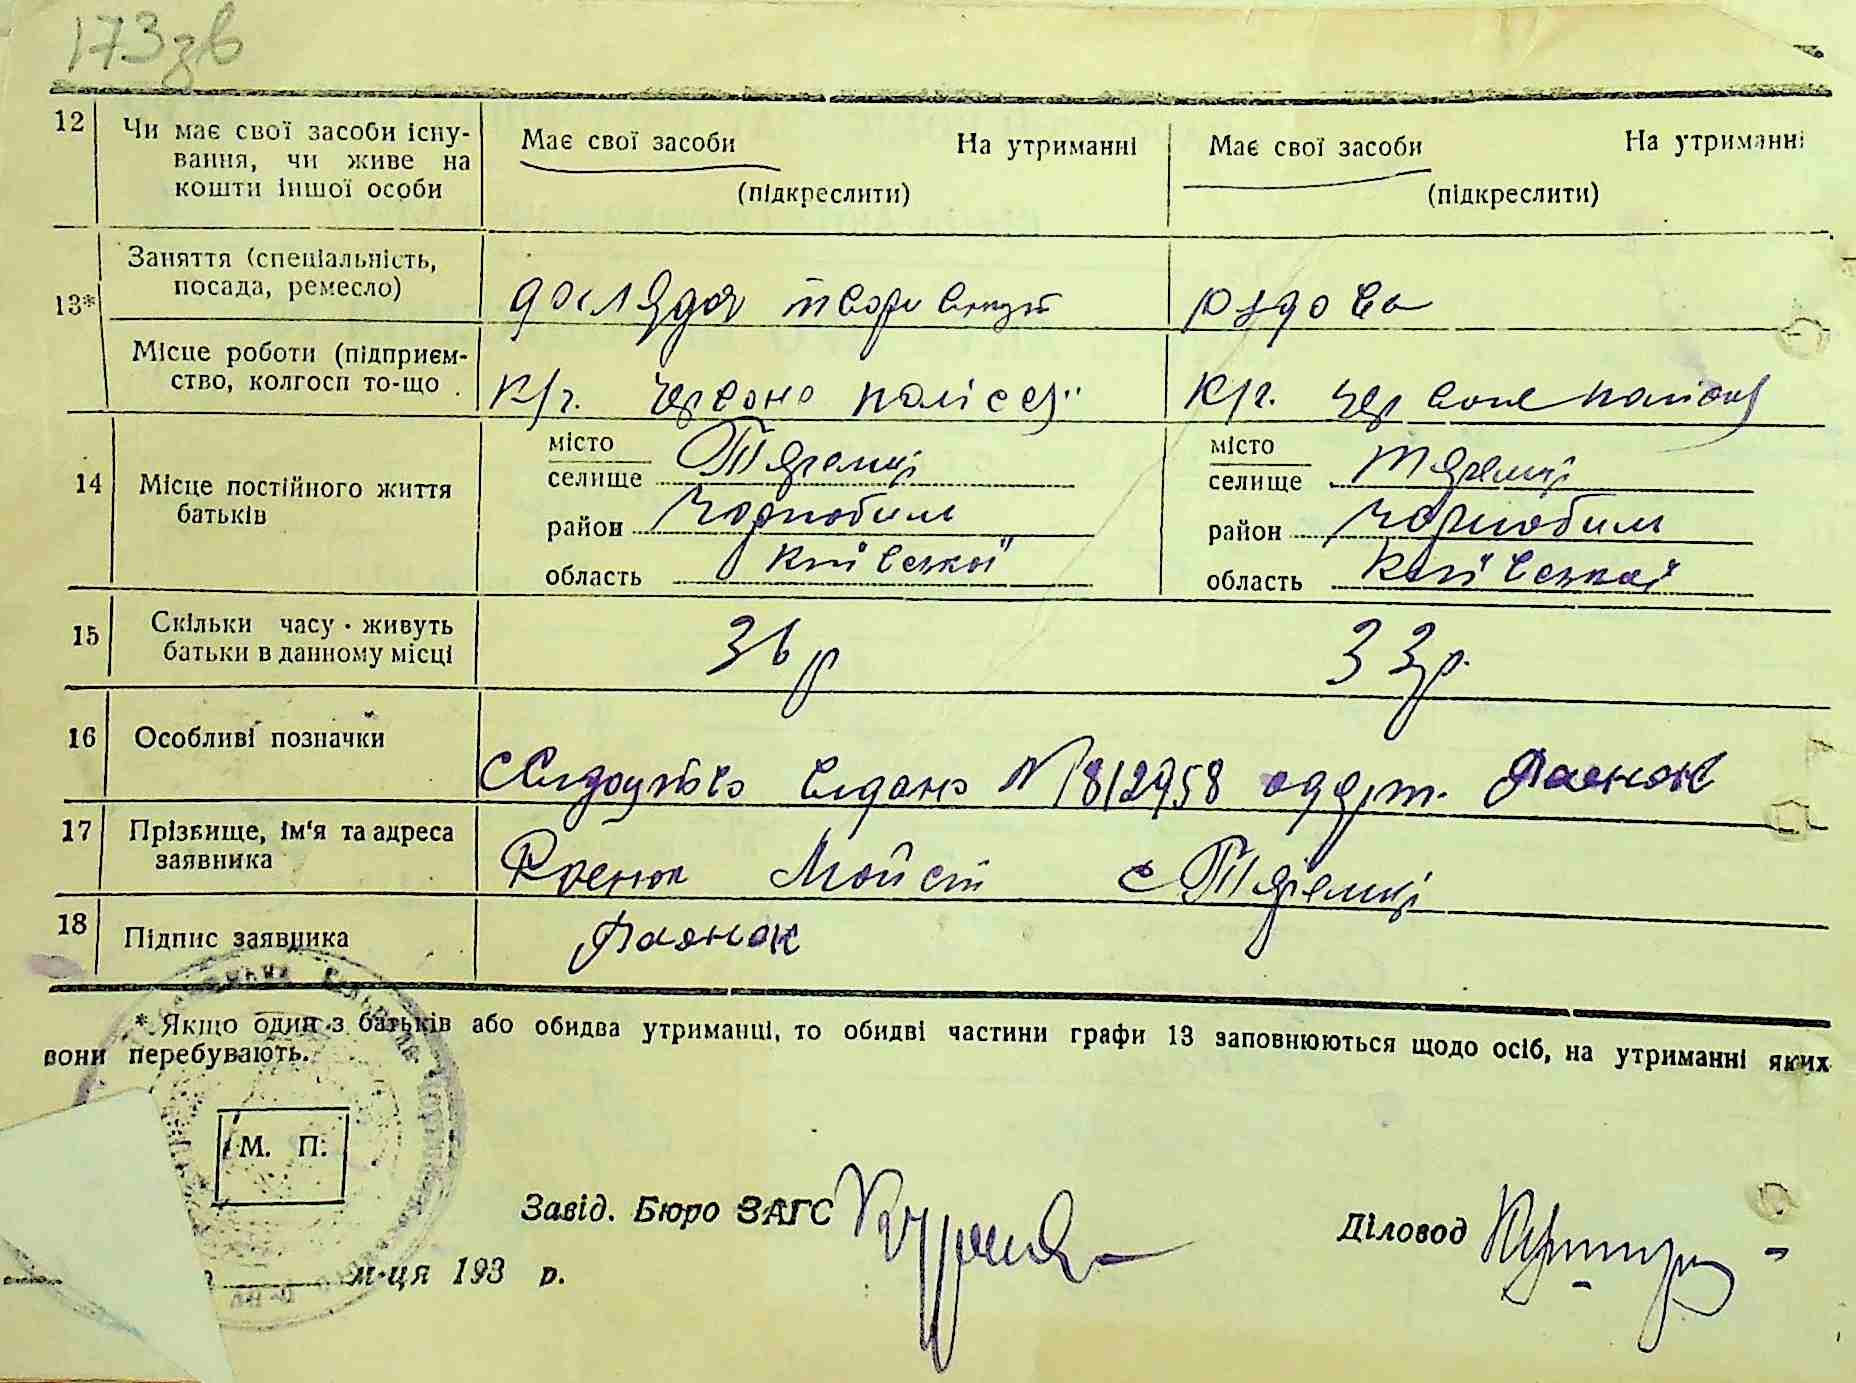 173зв
12 Чи має свої засоби існу-
вання, чи живе на
кошти іншої особи
Має свої засоби На утриманні
(підкреслити)
Має свої засоби На утриманні
(підкреслити)
13* Заняття (спеціальність,
посада, ремесло)
догляда твари
рядова
Місце роботи (підприєм-
ство, колгосп то-що
к/г. Червоне полісся
к/г. Червоне полісся
14 Місце постійного життя
батьків
місто
селище
район Чорнобиль
область Київської
місто
селище
район Чорнобиль
область Київської
15 Скільки часу живуть
батьки в данному місці
36 р
33 р.
16 Особливі позначки
видано № 812958
17 Прізвище, ім'я та адреса
заявника
Мойсей с
18 Підпис заявника
* Якщо один з батьків або обидва утриманці, то обидві частини графи 13 заповнюються щодо осіб, на утриманні яких
вони перебувають.
М. П.
Завід. Бюро ЗАГС
Діловод
м-ця 193 р.